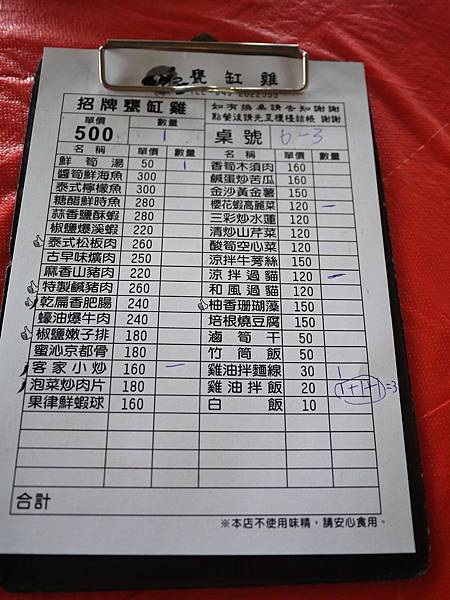 甕缸雞
招牌甕缸雞
如有換桌請告知謝謝
點餐後請先至櫃檯結帳 謝謝
單價 數量
500 1
桌號 6-3
名稱 單價 數量 名稱 單價 數量
鮮筍湯 50 1 香筍木須肉 160
醬筍鮮海魚 300 鹹蛋炒苦瓜 160
泰式檸檬魚 300 金沙黃金薯 150
糖醋鮮時魚 280 櫻花蝦高麗菜 120 一
蒜香鹽酥蝦 280 三彩炒水蓮 120
椒鹽爆溪蝦 220 清炒山芹菜 120
泰式松板肉 260 酸筍空心菜 120
古早味爌肉 250 涼拌牛蒡絲 150
麻香山豬肉 220 涼拌過貓 120 一
特製鹹豬肉 260 和風過貓 120
乾扁香肥腸 240 柚香珊瑚藻 150
蠔油爆牛肉 240 培根燒豆腐 150
椒鹽嫩子排 180 滷筍干 50
蜜沁京都骨 180 竹筒飯 50
客家小炒 160 一 雞油拌麵線 30 1
泡菜炒肉片 180 雞油拌飯 20 1+1+1=3
果律鮮蝦球 160 白飯 10
合計
※本店不使用味精，請安心食用。